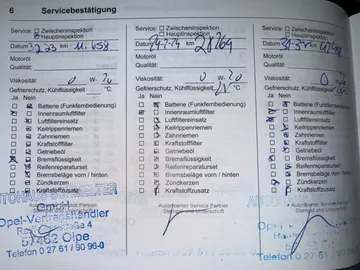 6 Servicebestätigung
Service: Zwischeninspektion
Hauptinspektion
Datum 3.23 km 11.658
Motoröl
Qualität:
Viskosität: 0 W- 20
Gefrierschutz, Kühlflüssigkeit °C
Ja Nein
Batterie (Funkfernbedienung)
Innenraumluftfilter
Luftfiltereinsatz
Keilrippenriemen
Zahnriemen
Kraftstofffilter
Getriebeöl
Bremsflüssigkeit
Reifenreparaturset
Bremsbeläge vorn / hinten
Zündkerzen
Kraftstoffzusatz
Autorisierter Service Partner
Stempel und Unterschrift
GmbH
Opel-Vertragshändler
57462 Olpe
Telefon 0 27 61 / 90 96-0
Service: Zwischeninspektion
Hauptinspektion
Datum 24-7-24 km 28264
Motoröl
Qualität:
Viskosität: 0 W- 20
Gefrierschutz, Kühlflüssigkeit °C
Ja Nein
Batterie (Funkfernbedienung)
Innenraumluftfilter
Luftfiltereinsatz
Keilrippenriemen
Zahnriemen
Kraftstofffilter
Getriebeöl
Bremsflüssigkeit
Reifenreparaturset
Bremsbeläge vorn / hinten
Zündkerzen
Kraftstoffzusatz
Autorisierter Service Partner
Stempel und Unterschrift
Service: Zwischeninspektion
Hauptinspektion
Datum km
Motoröl
Qualität:
Viskosität: 0
Gefrierschutz, Kühlflüssigkeit
Ja Nein
Batterie (Funkfernbedienung)
Innenraumluftfilter
Luftfiltereinsatz
Keilrippenriemen
Zahnriemen
Kraftstofffilter
Getriebeöl
Bremsflüssigkeit
Reifenreparaturset
Bremsbeläge vorn / hinten
Zündkerzen
Kraftstoffzusatz
Autorisierter Service Partner
Stempel und Unterschrift
Telefon 0 27 61 / 90